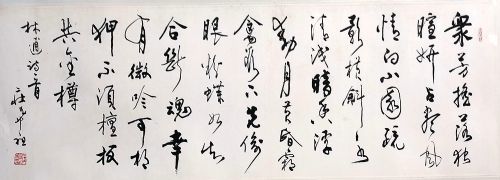 衆芳搖落獨
暄妍占盡風
情向小園疏
影橫斜水
清淺暗香浮
動月黃昏霜
禽欲下先偷
眼粉蝶如知
合斷魂幸
有微吟可相
狎不須檀板
共金樽
林逋詩一首